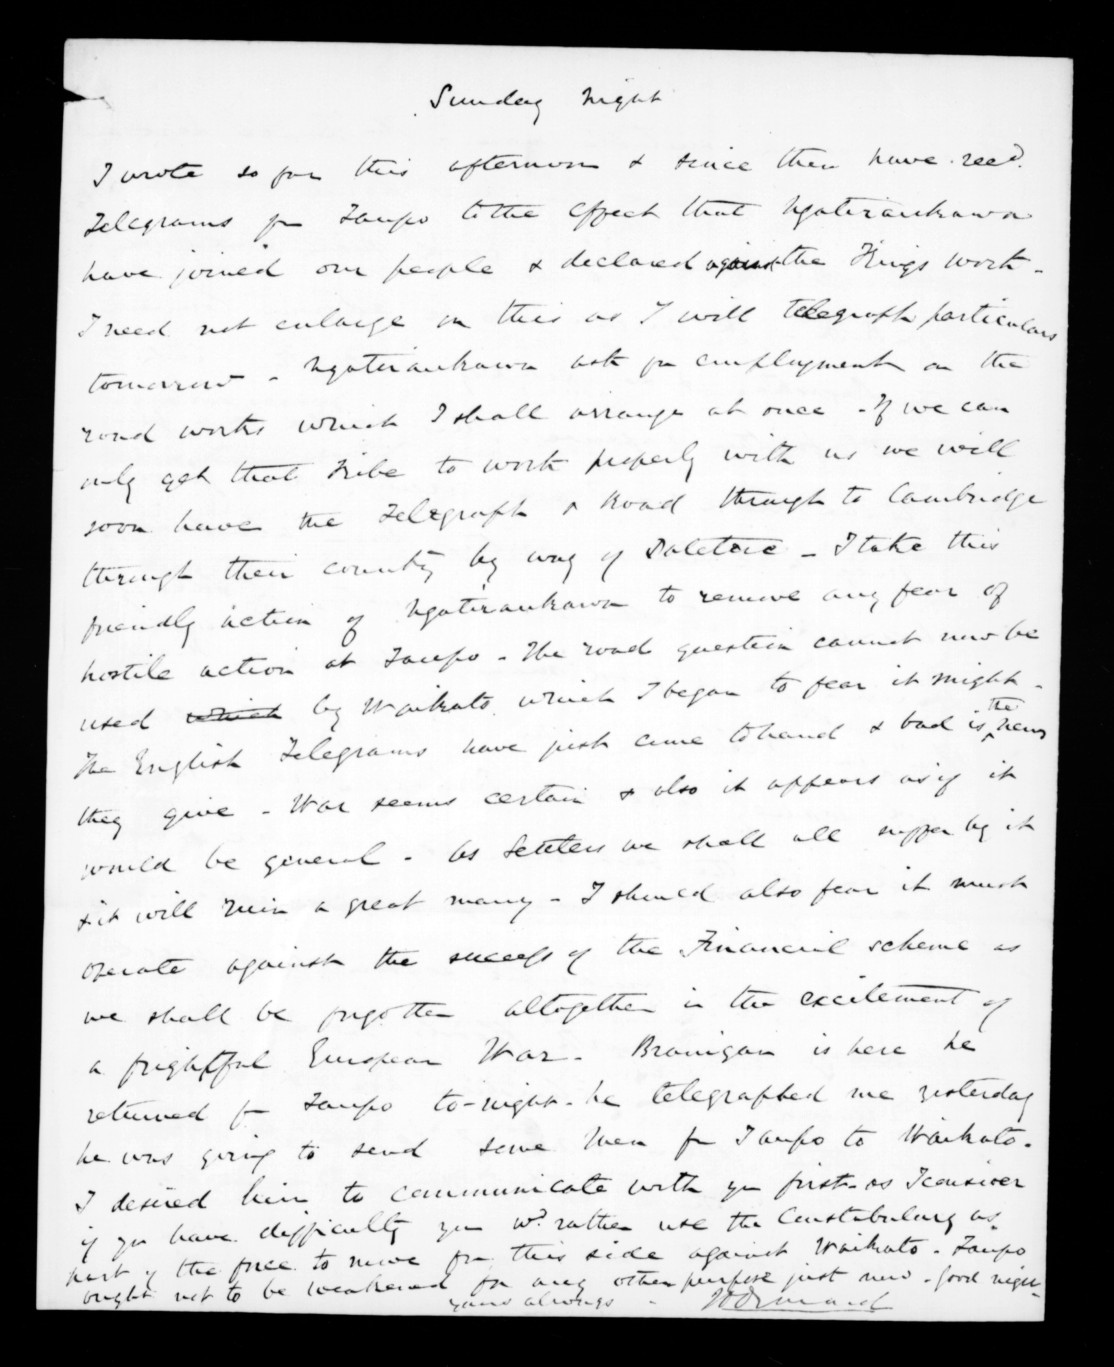 Sunday Night
I wrote so far this afternoon & since then have recd.
Telegrams fm Taupo to the effect that Ngatiraukawa
have joined our people & declared against the Kings work -
I need not enlarge on this as I will telegraph particulars
tomorrow - Ngatiraukawa ask for employment on the
road works which I shall arrange at once - If we can
only get that Tribe to work properly with us we will
soon have the Telegraph & Road through to Cambridge
through their country by way of Patetere - I take this
friendly action of Ngatiraukawa to remove any fear of
hostile action at Taupo - The road question cannot now be
used which by Waikato which I began to fear it might -
The English Telegrams have just come to hand & bad is the news
they give - War seems certain & also it appears as if it
would be general - As Settlers we shall all suffer by it
& it will ruin a great many - I should also fear it must
operate against the success of the Financial scheme as
we shall be forgotten altogether in the excitement of
a frightful European War - Branigan is here he
returned fm Taupo to-night - he telegraphed me yesterday
he was going to send some Men fm Taupo to Waikato -
I desired him to communicate with you first - as I consider
if you have difficulty you wd. rather use the Constabulary as
part of the force to move from this side against Waikato - Taupo
ought not to be weakened for any other purpose just now - Good night -
yours always - JD Ormond